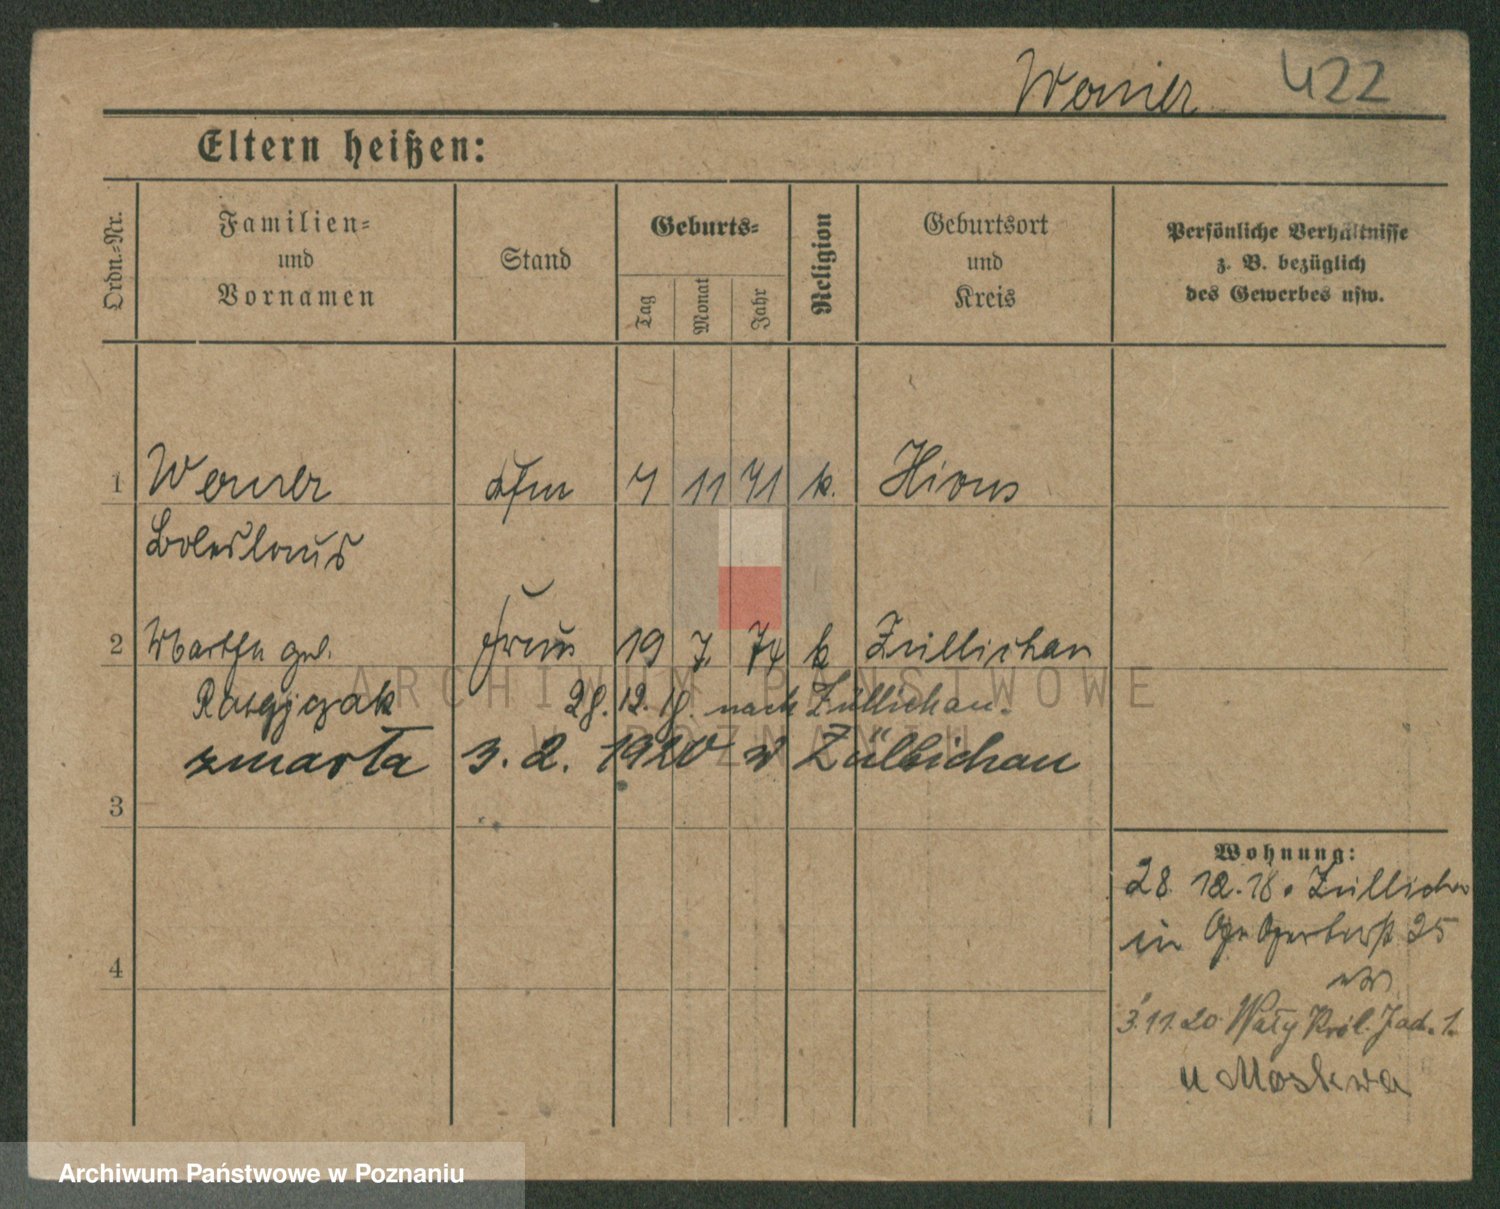 Werner 422
Eltern heißen:
Ordn.-Nr.
Familien-
und
Vornamen
Stand
Geburts-
Tag
Monat
Jahr
Religion
Geburtsort
und
Kreis
Persönliche Verhältnisse
z. B. bezüglich
des Gewerbes usw.
1 Werner 11 71 k. Xions
Boleslaus
2 Martha geb. Frau 19 7. 74 k Züllichau
28. 12. 18. nach Züllichau.
zmarła 3. 2. 1920 w Züllichau
3
4
Wohnung:
28. 12. 18. Züllichau
in 25
3.11.20 Wały Król. Jad. 1.
u Moskwa
ARCHIWUM PAŃSTWOWE
W POZNANIU
Archiwum Państwowe w Poznaniu